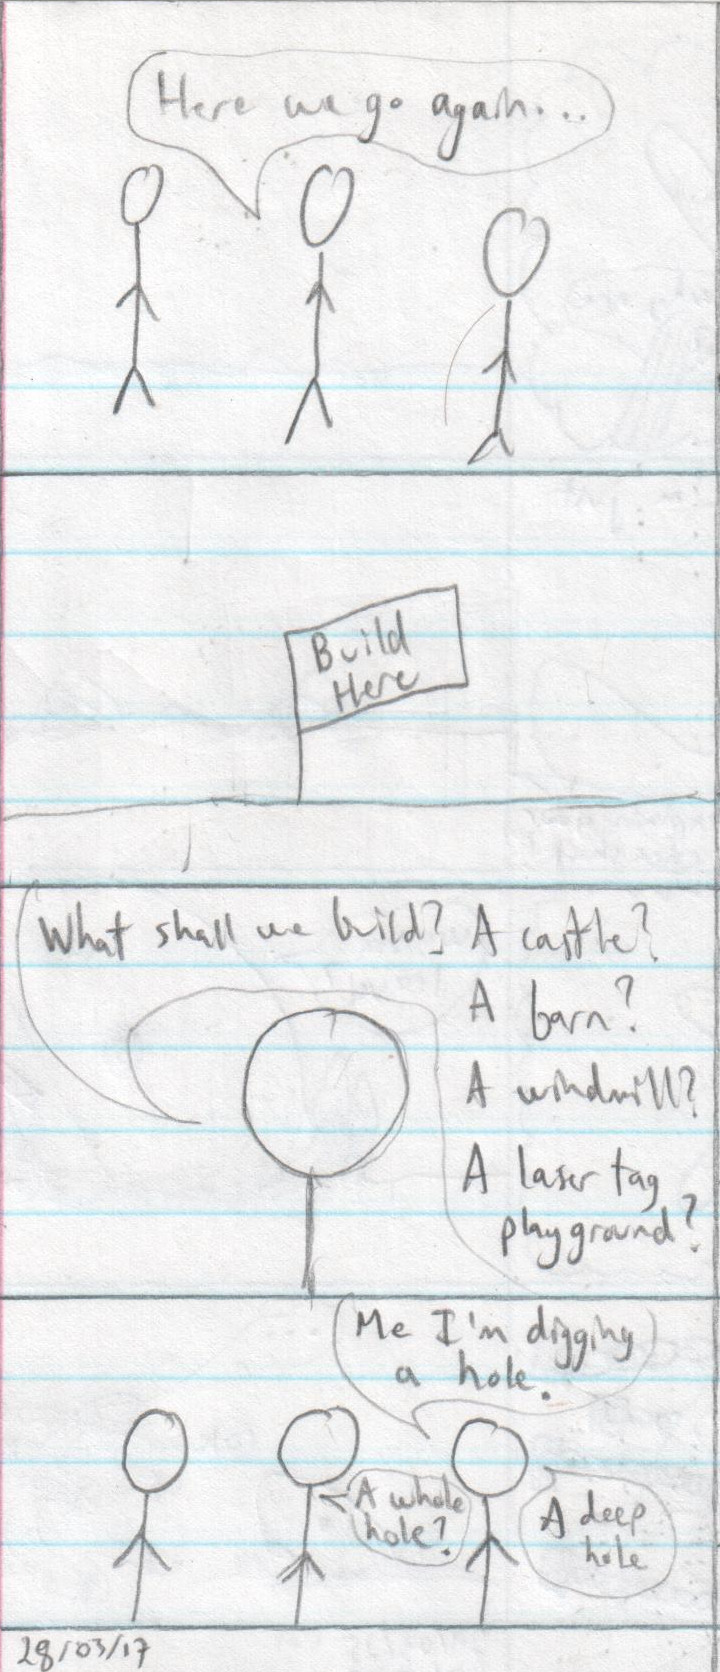 Here we go again...
Build
Here
What shall we build? A castle?
A barn?
A windmill?
A laser tag
playground?
Me I'm digging
a hole.
A whole
hole?
A deep
hole
28/03/17